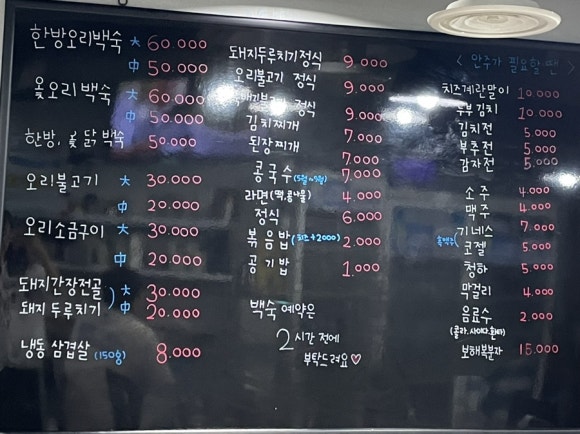 한방오리백숙 大 60.000
中 50.000
옻오리백숙 大 60.000
中 50.000
한방, 옻 닭 백숙 50.000
오리불고기 大 30.000
中 20.000
오리소금구이 大 30.000
中 20.000
돼지간장전골 ) 大 30.000
돼지 두루치기 中 20.000
냉동 삼겹살 (150g) 8.000
돼지두루치기정식 9.000
오리불고기 정식 9.000
정식 9.000
김치찌개 7.000
된장찌개 7.000
콩국수 (5월~9월) 7.000
라면 (떡,콩나물) 4.000
정식 6.000
볶음밥 (치즈+2000) 2.000
공기밥 1.000
백숙 예약은
2시간 전에
부탁드려요♡
< 안주가 필요할땐 >
치즈계란말이 10.000
두부김치 10.000
김치전 5.000
부추전 5.000
감자전 5.000
소주 4.000
맥주 4.000
흑맥주 ( 기네스 7.000
코젤 5.000
청하 5.000
막걸리 4.000
음료수 2.000
(콜라.사이다.환타)
보해복분자 15.000